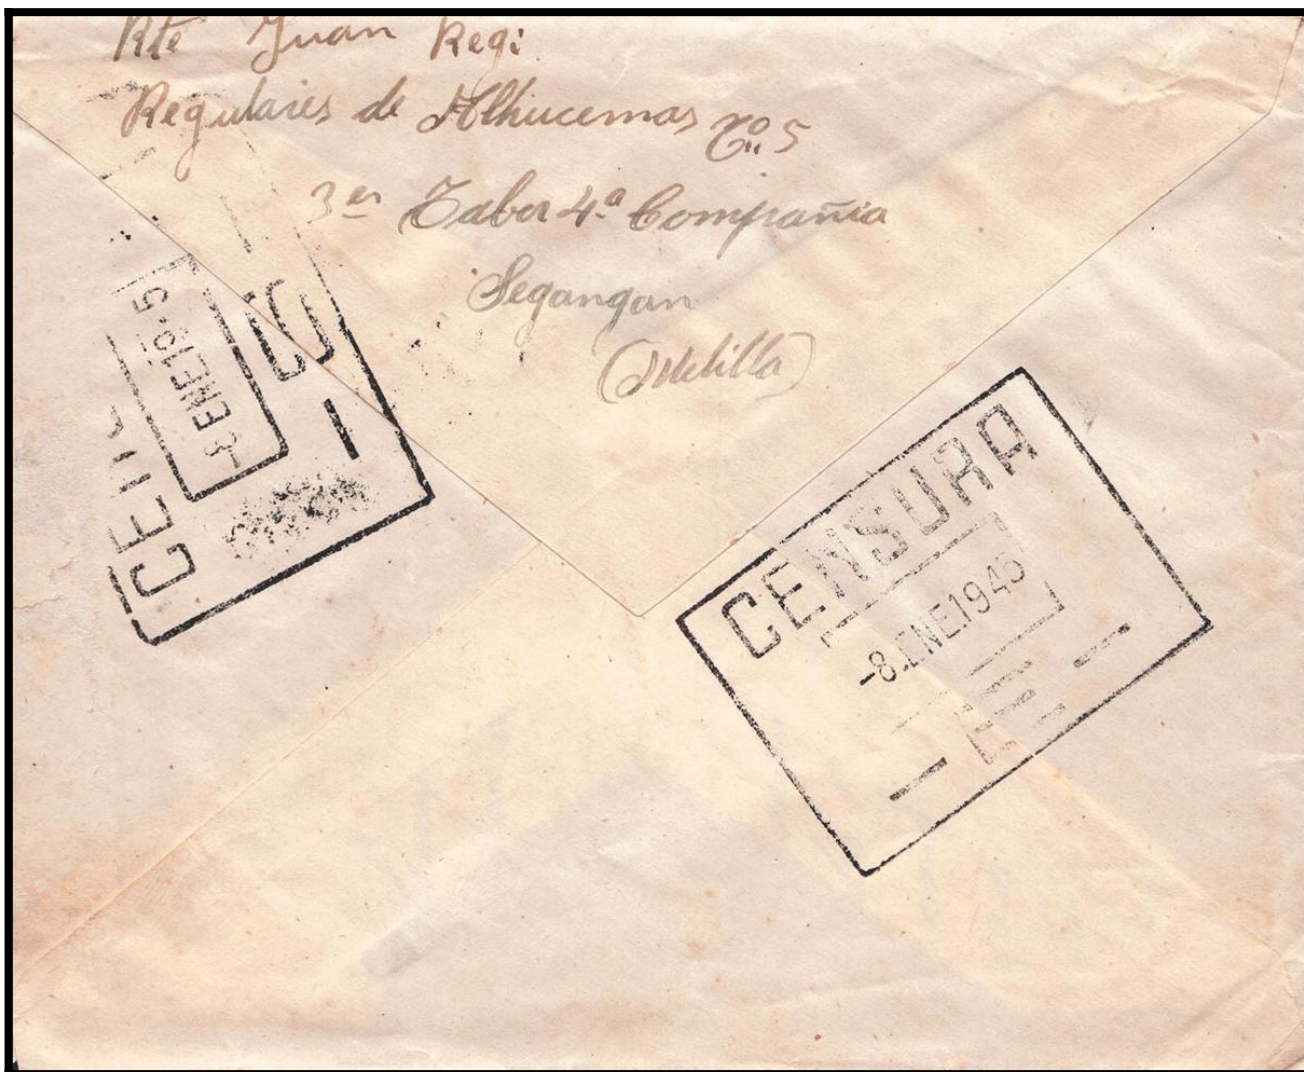 Rte Juan Regi
Regulares de Alhucemas nº 5
3er Tabor 4ª Compañia
Segangan
(Melilla)
CENSURA
-8.ENE1945